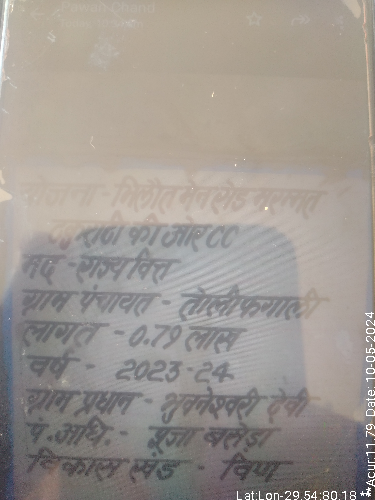 Pawan Chand
योजना - मिलौत मेन रोड मरम्मत
राठी की ओर CC
मद - राज्य वित्त
ग्राम पंचायत - तोलीफगाली
लागत - 0.79 लाख
वर्ष - 2023-24
ग्राम प्रधान - भुवनेश्वरी देवी
प. अधि - पूजा बलोडा
विकास खंड - विण
Lat:Lon-29.54:80.18 **Acur:11.79 Date: 10-05-2024